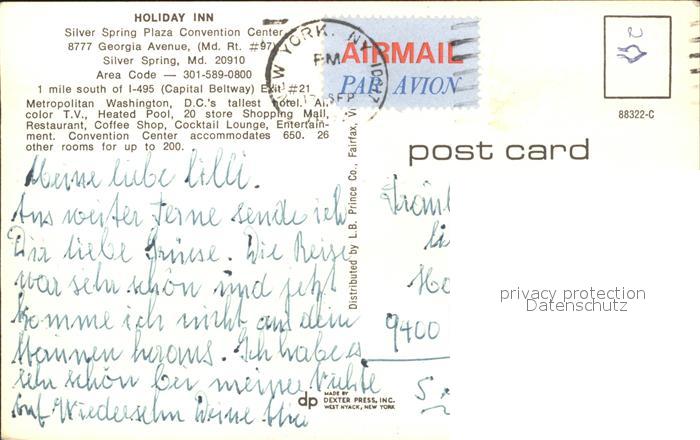 HOLIDAY INN
Silver Spring Plaza Convention Center
8777 Georgia Avenue, (Md. Rt. #97)
Silver Spring, Md. 20910
Area Code — 301-589-0800
1 mile south of I-495 (Capital Beltway) Exit #21
Metropolitan Washington, D.C.'s tallest hotel. All
color T.V., Heated Pool, 20 store Shopping Mall,
Restaurant, Coffee Shop, Cocktail Lounge, Entertain-
ment. Convention Center accommodates 650. 26
other rooms for up to 200.
NEW YORK, NY
PM
SEP
AIRMAIL
PAR AVION
88322-C
post card
Meine liebe Lilli.
Aus weiter Ferne sende ich
Dir liebe Grüsse. Die Reise
war sehr schön und jetzt
komme ich nicht aus dem
Staunen heraus. Ich habe es
sehr schön bei meiner Nichte
Auf Wiedersehn Deine
Distributed by L.B. Prince Co., Fairfax,
Fräul
9400
privacy protection
Datenschutz
dp MADE BY
DEXTER PRESS, INC.
WEST NYACK, NEW YORK